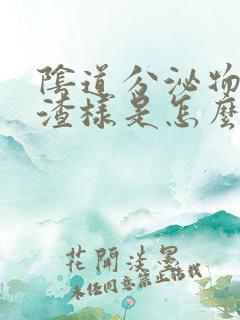 陰道分泌物
渣樣是怎麼
花開淡墨
未经同意禁止转载